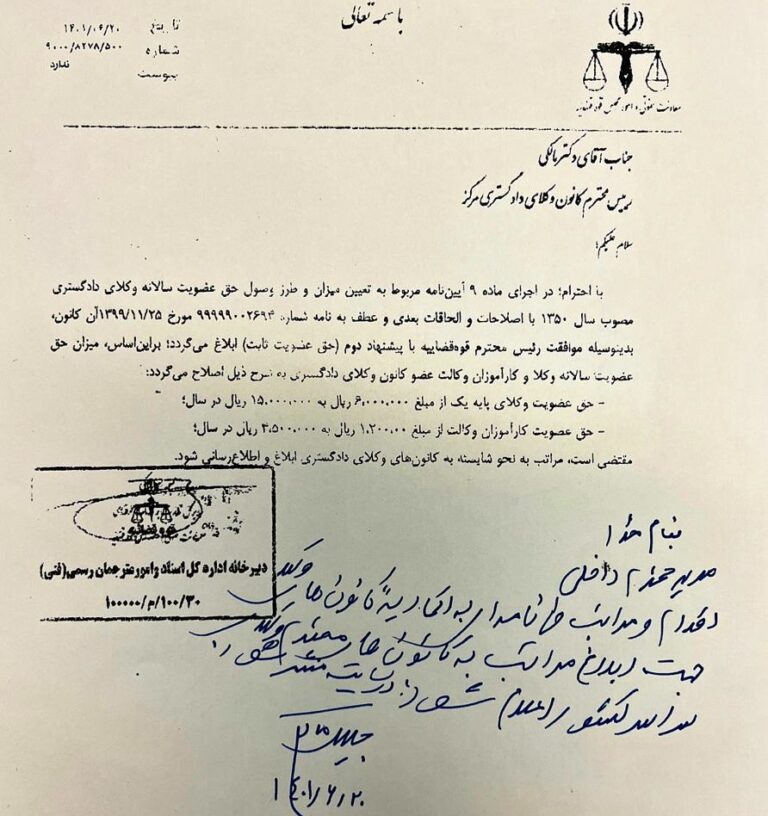 باسمه تعالی
تاریخ ۱۴۰۱/۰۶/۲۰
شماره ۹۰۰۰/۸۲۷۸/۵۰۰
پیوست ندارد
معاونت حقوقی و امور مجلس قوه قضاییه
جناب آقای دکتر مالکی
رییس محترم کانون وکلای دادگستری مرکز
سلام علیکم؛
با احترام؛ در اجرای ماده ۹ آیین‌نامه مربوط به تعیین میزان و طرز وصول حق عضویت سالانه وکلای دادگستری
مصوب سال ۱۳۵۰ با اصلاحات و الحاقات بعدی و عطف به نامه شماره ۹۹۹۹۹۰۰۲۶۹۴ مورخ ۱۳۹۹/۱۱/۲۵آن کانون،
بدینوسیله موافقت رئیس محترم قوه‌قضاییه با پیشنهاد دوم (حق عضویت ثابت) ابلاغ می‌گردد؛ براین‌اساس، میزان حق
عضویت سالانه وکلا و کارآموزان وکالت عضو کانون وکلای دادگستری به شرح ذیل اصلاح می‌گردد:
- حق عضویت وکلای پایه یک از مبلغ ۶،۰۰۰،۰۰۰ ریال به ۱۵،۰۰۰،۰۰۰ ریال در سال؛
- حق عضویت کارآموزان وکالت از مبلغ ۱،۲۰۰،۰۰ ریال به ۳،۵۰۰،۰۰۰ ریال در سال؛
مقتضی است، مراتب به نحو شایسته به کانون‌های وکلای دادگستری ابلاغ و اطلاع‌رسانی شود.
قوه قضائیه
دبیرخانه اداره کل اسناد و امور مترجمان رسمی(فنی)
۱۰۰۰۰۰/م/۱۰۰/۳۰
بنام خدا
مدیر محترم داخلی
اقدام و مراتب طی نامه‌ای به اتحادیه کانون‌های وکلا
جهت ابلاغ مراتب به کانون‌های محترم وکلای
سراسر کشور اعلام شود. در سایت منتشر شود.
۱۴۰۱/۶/۲۰